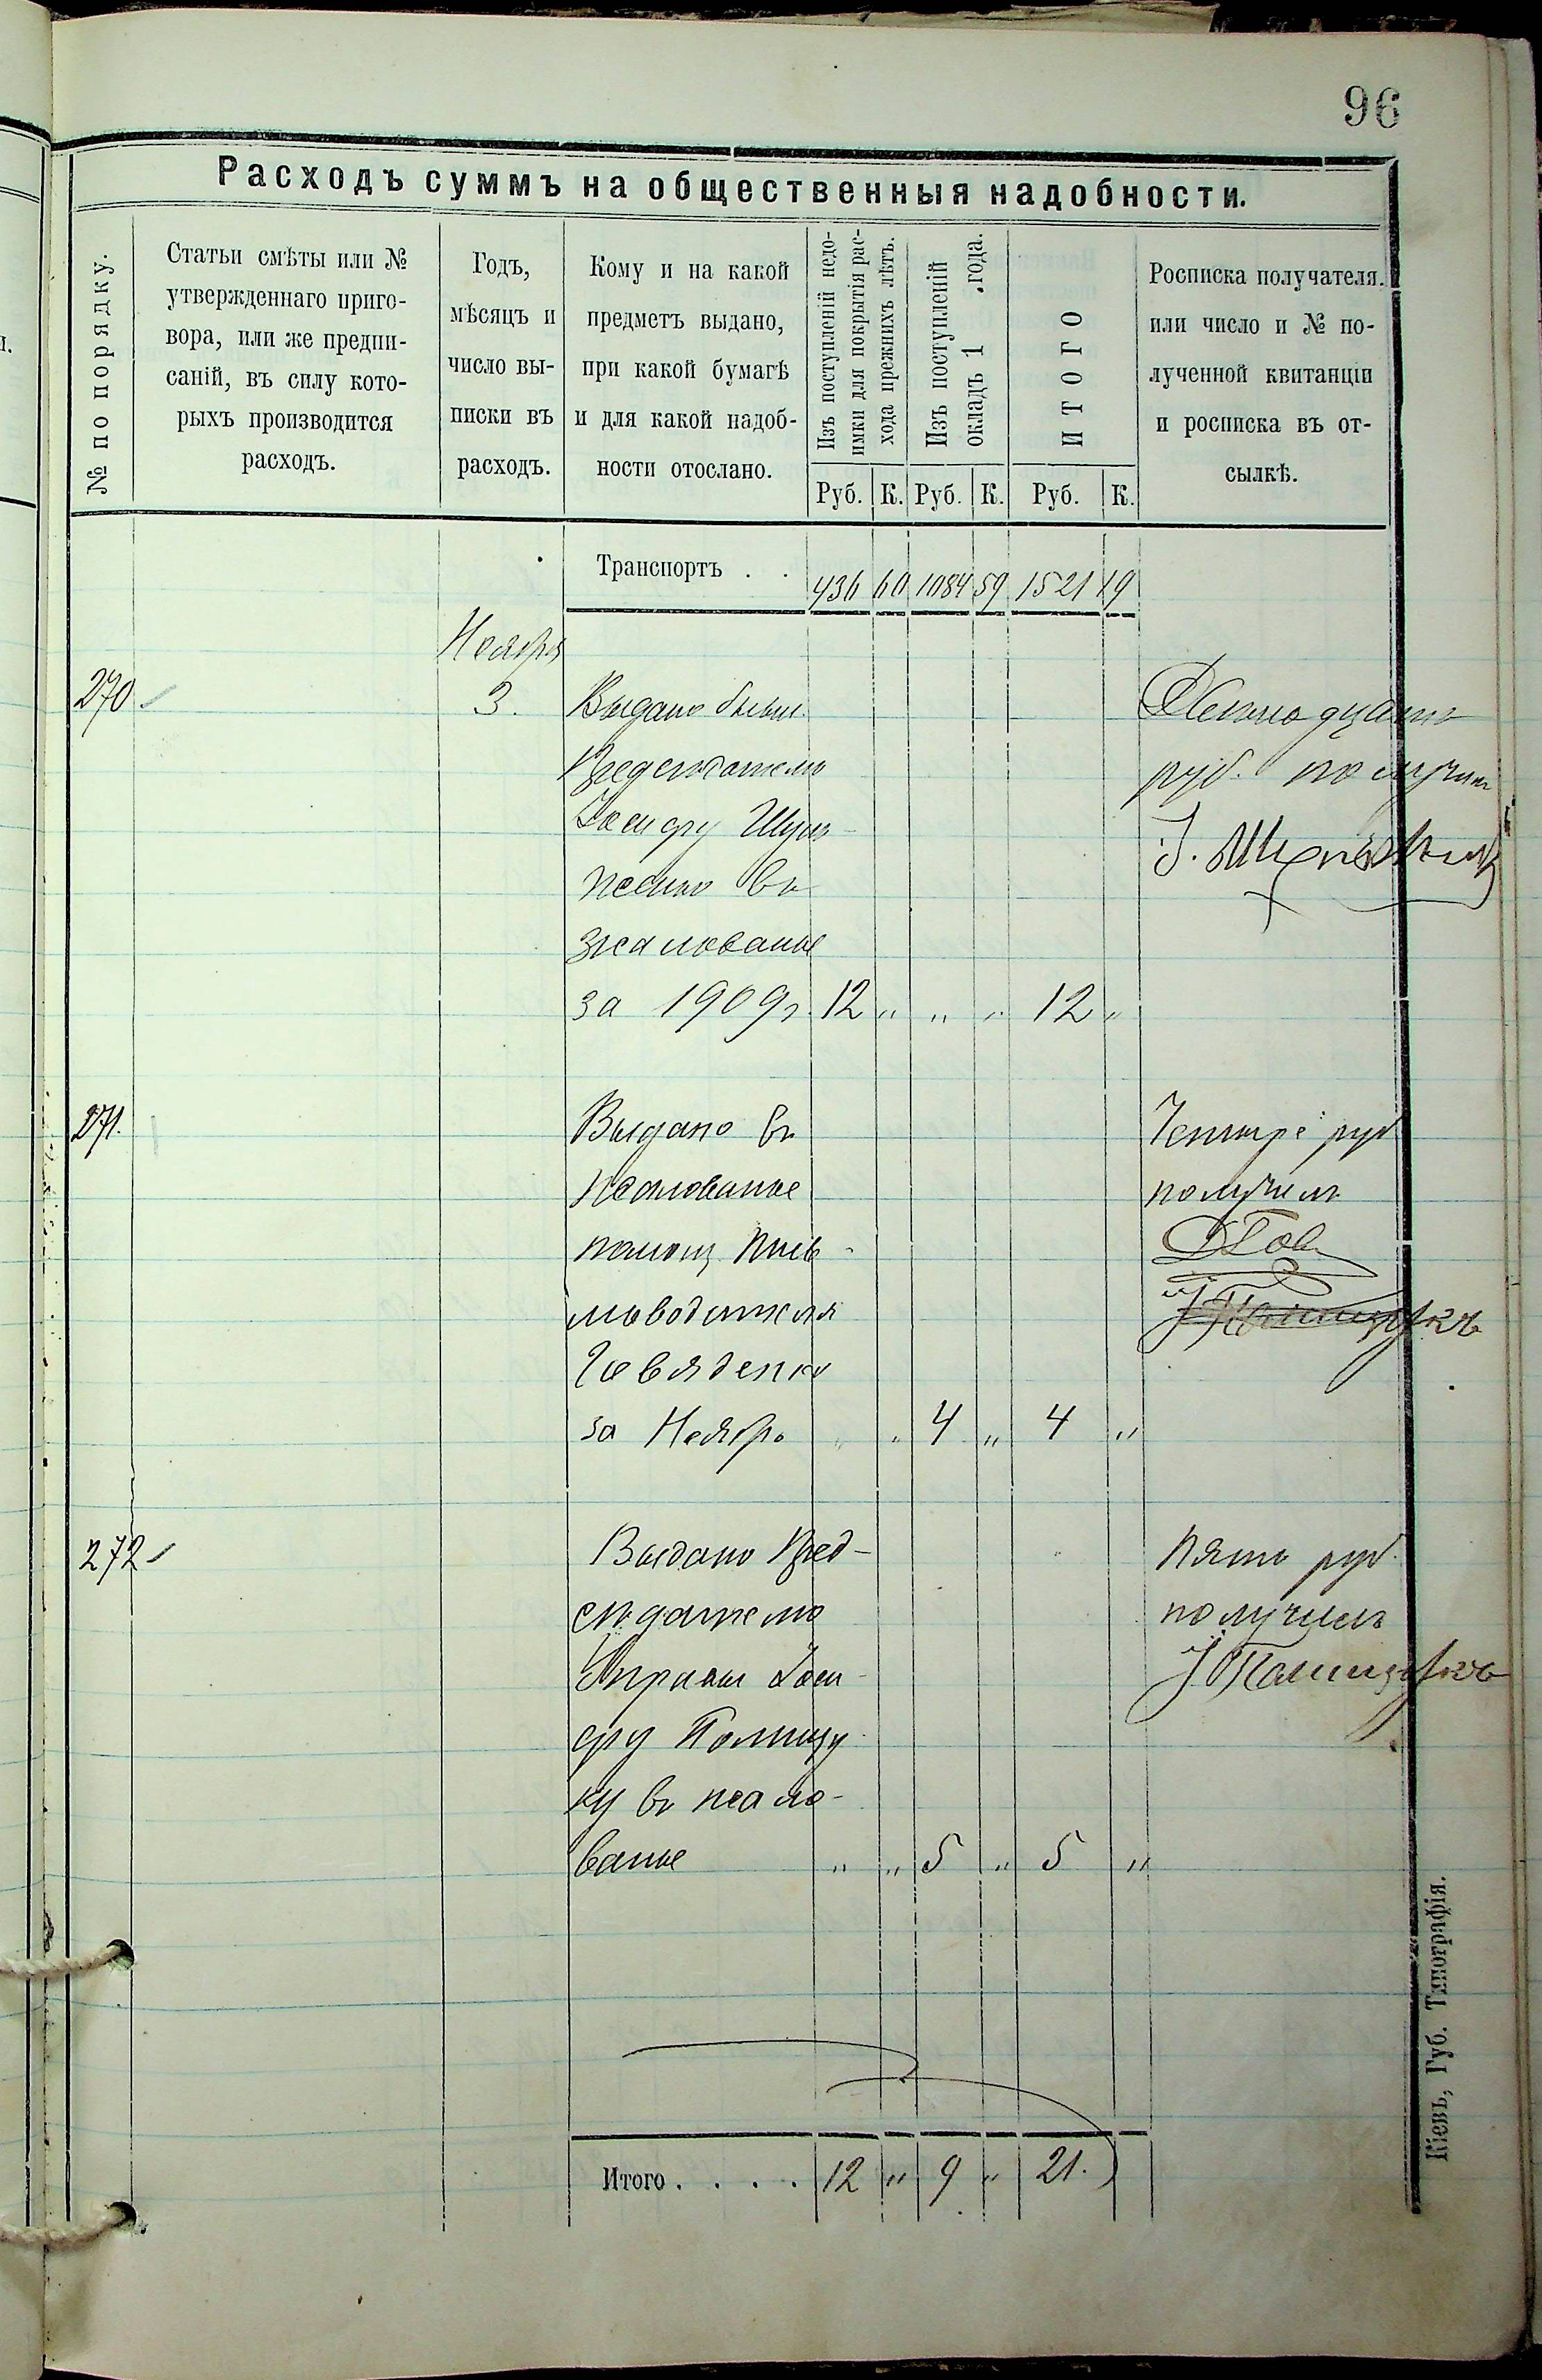 96
Расходъ суммъ на общественныя надобности.
№ по порядку.
Статьи смѣты или №
утвержденнаго приго-
вора, или же предпи-
саній, въ силу кото-
рыхъ производится
расходъ.
Годъ,
мѣсяцъ и
число вы-
писки въ
расходъ.
Кому и на какой
предметъ выдано,
при какой бумагѣ
и для какой надоб-
ности отослано.
Изъ поступленій недо-
имки для покрытія рас-
хода прежнихъ лѣтъ.
Изъ поступленій
окладъ 1 .года.
ИТОГО
Руб. К. Руб. К. Руб. К.
Росписка получателя.
или число и № по-
лученной квитанціи
и росписка въ от-
сылкѣ.
Транспортъ . . 436 60 1084 59 1521 19
Ноября
270 3. Выдано бывш.
Предсѣдателю
Іосифу
въ
жалованье
за 1909 г. 12 " " " 12 "
Двенадцать
руб. получилъ
271. Выдано въ
жалованье
помощ. Пись-
моводителя
Говяденко
за Ноябрь " " 4 " 4 "
Четыре руб
получилъ
ДГов
І Полищукъ
272 Выдано Пред-
сѣдателю
Управы Іоси-
фу Полищу
ку въ жало-
ванье " " 5 " 5 "
Пять руб.
получилъ
І Полищукъ
Итого . . . . 12 " 9 " 21.
Кіевъ, Губ. Типографія.